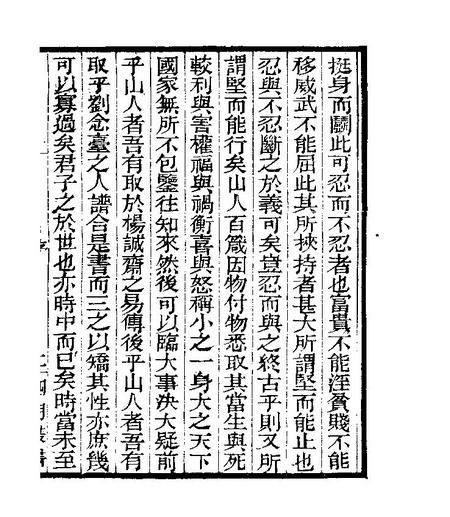 挺身而鬭此可忍而不忍者也富貴不能淫貧賤不能
移威武不能屈此其所挾持者甚大所謂堅而能止也
忍與不忍斷之於義可矣豈忍而與之終古乎則又所
謂堅而能行矣山人百箴因物付物悉取其當生與死
較利與害權福與禍衡喜與怒稱小之一身大之天下
國家無所不包鑒往知來然後可以臨大事決大疑前
乎山人者吾有取於楊誠齋之易傳後乎山人者吾有
取乎劉念臺之人譜合是書而三之以矯其性亦庶幾
可以寡過矣君子之於世也亦時中而已矣時當未至
四明叢書